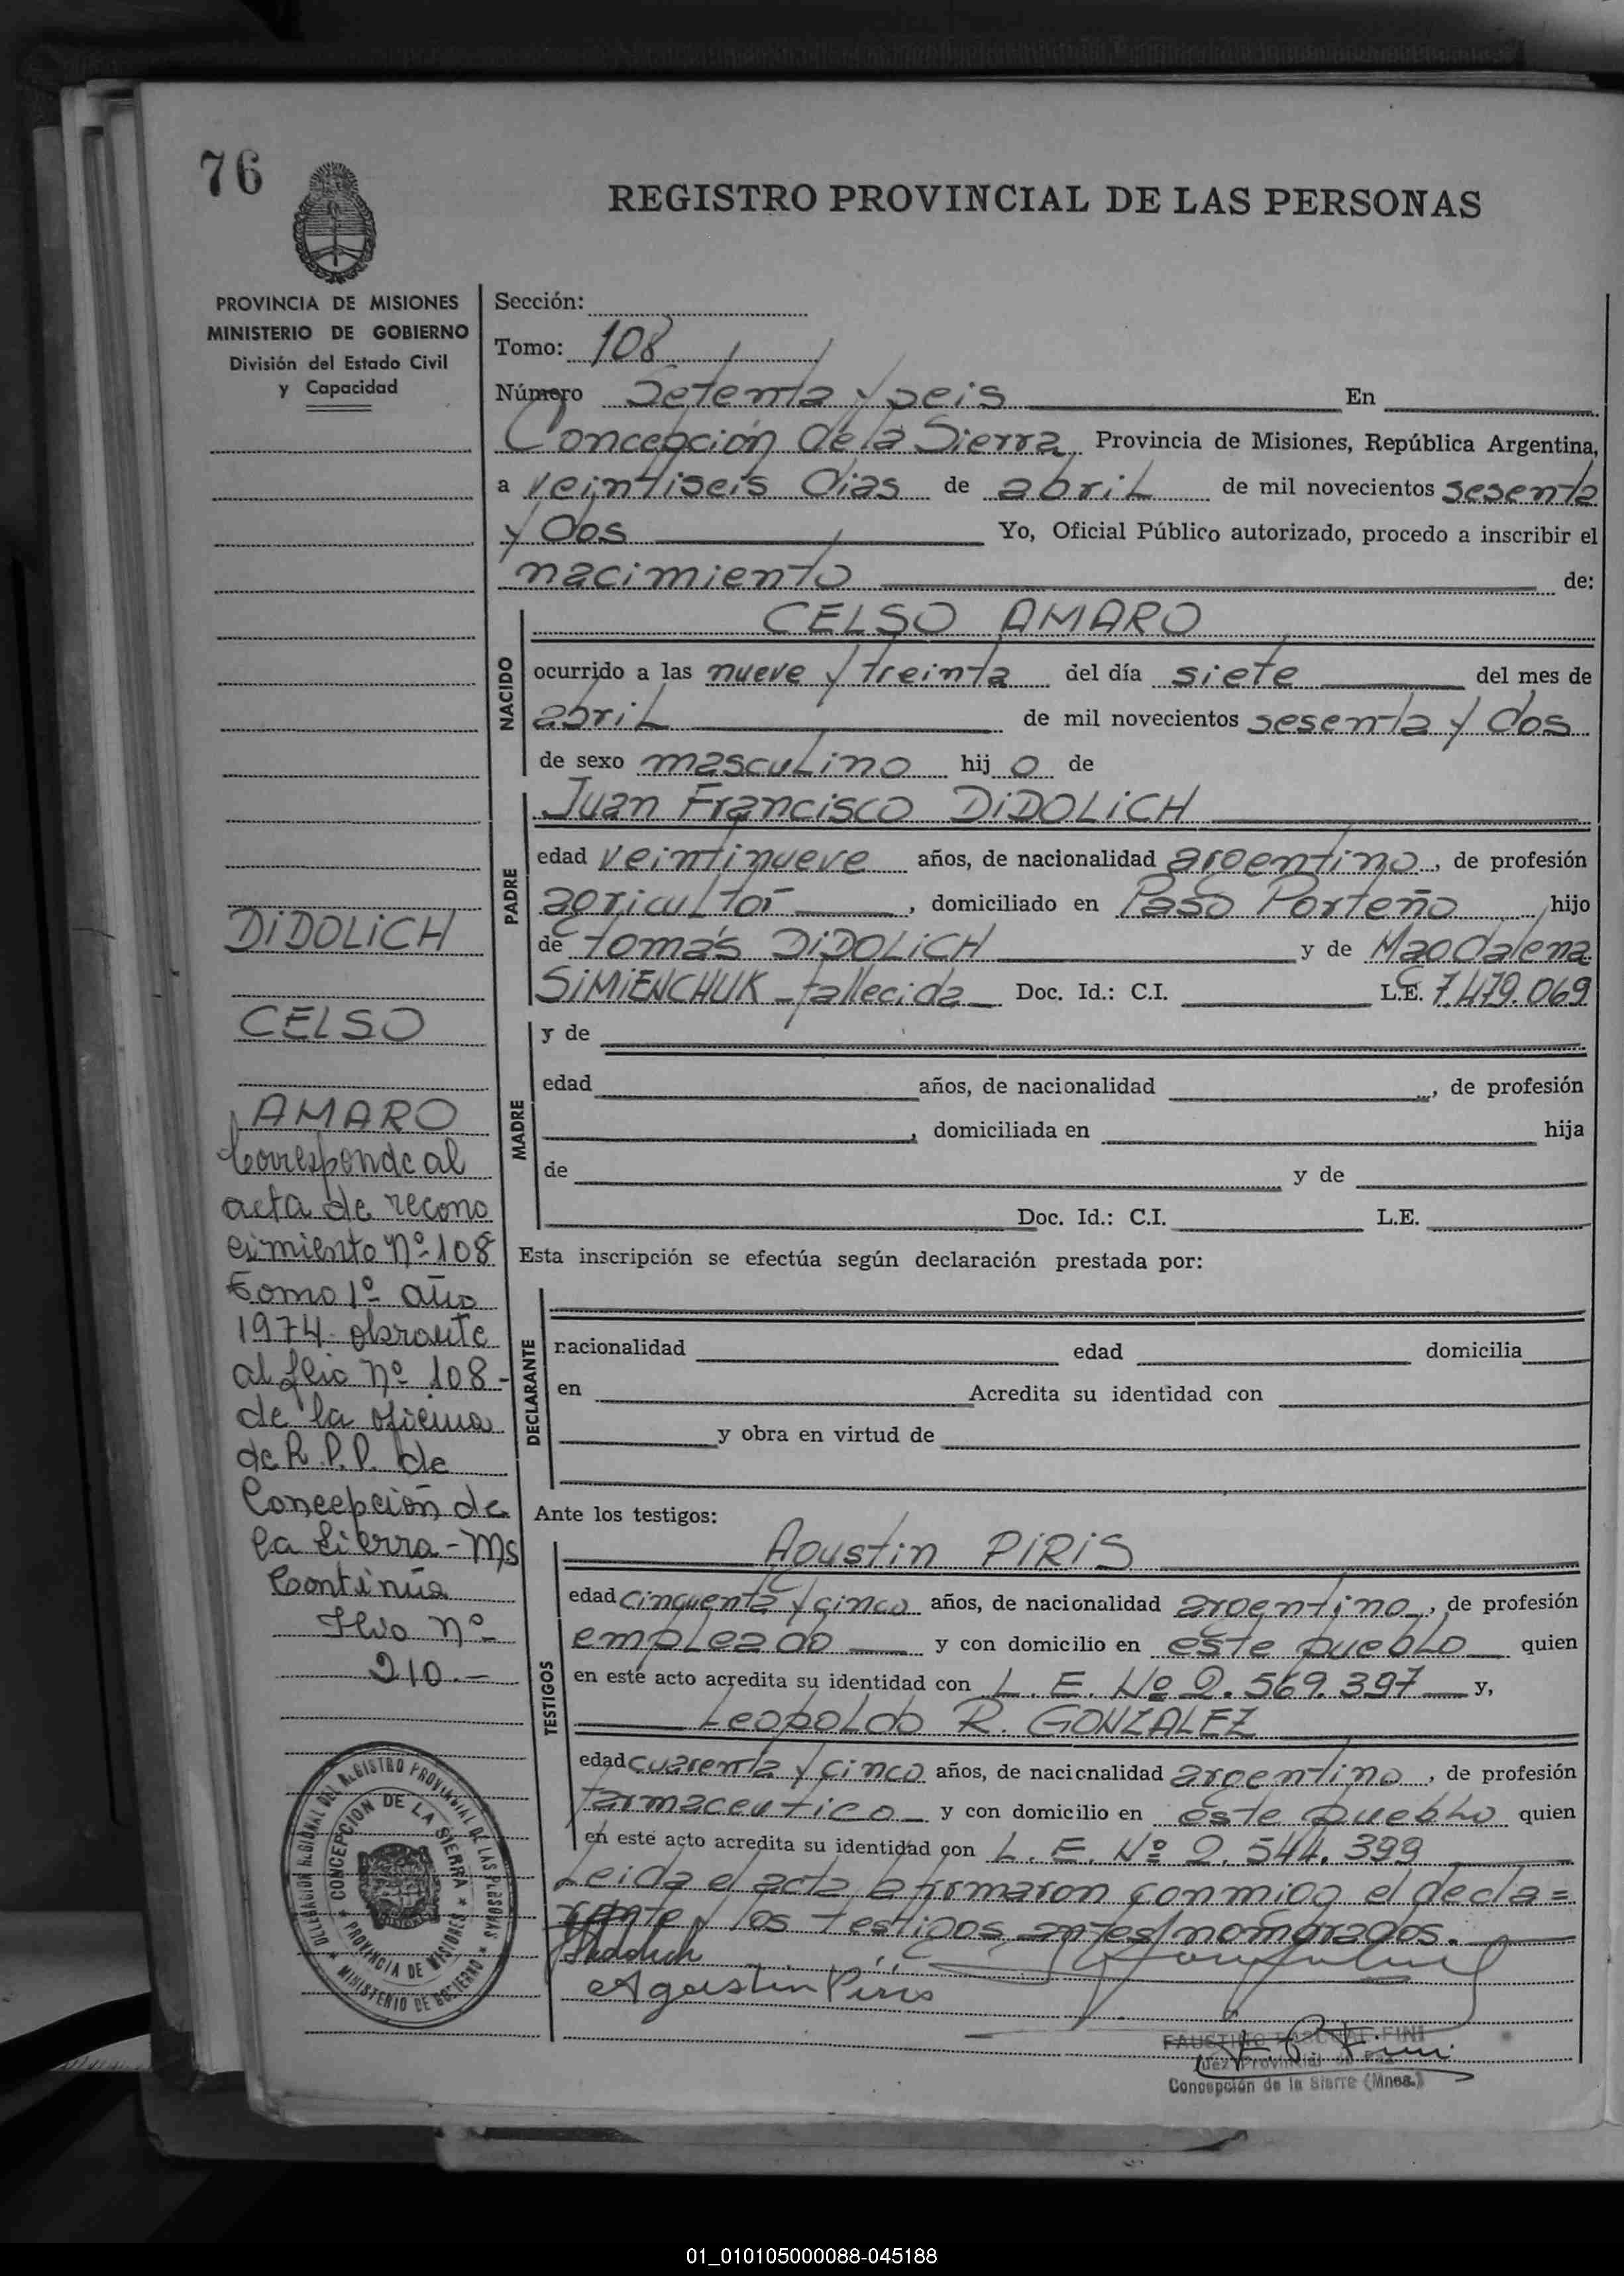 76
REGISTRO PROVINCIAL DE LAS PERSONAS
PROVINCIA DE MISIONES
MINISTERIO DE GOBIERNO
División del Estado Civil
y Capacidad
Sección:
Tomo: 108
Número Setenta y seis En
Concepción de la Sierra, Provincia de Misiones, República Argentina,
a veintiseis dias de abril de mil novecientos sesenta
y dos Yo, Oficial Público autorizado, procedo a inscribir el
nacimiento de:
NACIDO
CELSO AMARO
ocurrido a las nueve y treinta del día siete del mes de
abril de mil novecientos sesenta y dos
de sexo masculino hij o de
PADRE
Juan Francisco DiDOLiCH
edad veintinueve años, de nacionalidad argentino, de profesión
agricultor, domiciliado en Paso Porteño hijo
de tomás DiDOLiCH y de Magdalena
SiMiENCHUK - fallecida Doc. Id.: C.I. L.E. 7.479.069
MADRE
y de
edad años, de nacionalidad , de profesión
, domiciliada en hija
de y de
Doc. Id.: C.I. L.E.
Esta inscripción se efectúa según declaración prestada por:
DECLARANTE
nacionalidad edad domicilia
en Acredita su identidad con
y obra en virtud de
Ante los testigos:
TESTIGOS
Agustin PiRiS
edad cincuenta y cinco años, de nacionalidad argentino, de profesión
empleado y con domicilio en este pueblo quien
en este acto acredita su identidad con L. E. Nº 2.569.397 y,
Leopoldo R. GONZALEZ
edad cuarenta y cinco años, de nacicnalidad argentino, de profesión
farmaceutico y con domicilio en este pueblo quien
en este acto acredita su identidad con L. E. Nº 2.544.399
Leida el acta la firmaron conmigo el decla=
rante y los testigos antes nombrados.
Agustin Piris
FAUSTINO FINI
Juez Provincial de Paz
Concepción de la Sierra (Mnes.)
DiDOLiCH
CELSO
AMARO
Corresponde al
acta de recono
cimiento Nº 108
Tomo 1º año
1974 obrante
al flio nº 108-
de la oficina
de R.P.P. de
Concepción de
la Sierra - Ms
Continúa
flio nº
210.-
DELEGACION REGIONAL DEL REGISTRO PROVINCIAL DE LAS PERSONAS
CONCEPCION DE LA SIERRA
PROVINCIA DE MISIONES
MINISTERIO DE GOBIERNO
01_010105000088-045188